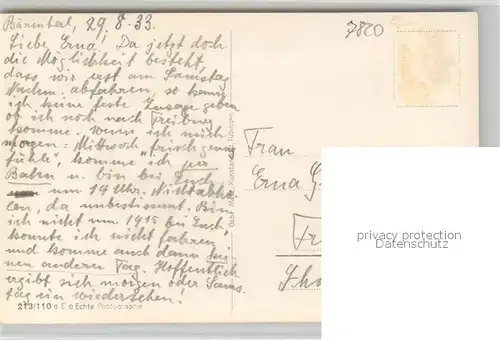 Bärental, 29.8.33.
7820
Liebe Erna! Da jetzt doch
die Möglichkeit besteht,
dass wir erst am Samstag
Nachm. abfahren, so kann
ich keine feste Zusage geben
ob ich noch nach Freiburg
komme. Wenn ich mich
morgen = Mittwoch frisch genug
fühle, komme ich per
Bahn u. bin bei Euch
um 14 Uhr. Nicht abho=
len, da unbestimmt. Bin
ich nicht um 1915 bei Euch,
konnte ich nicht fahren
und komme auch dann kei=
nen anderen Tag. Hoffentlich
ergibt sich morgen oder Sams=
tag ein Wiedersehen!
213/110 Echte Photographie
Gebr. Metz, Tübingen
Frau
Erna G
Fr
privacy protection
Datenschutz